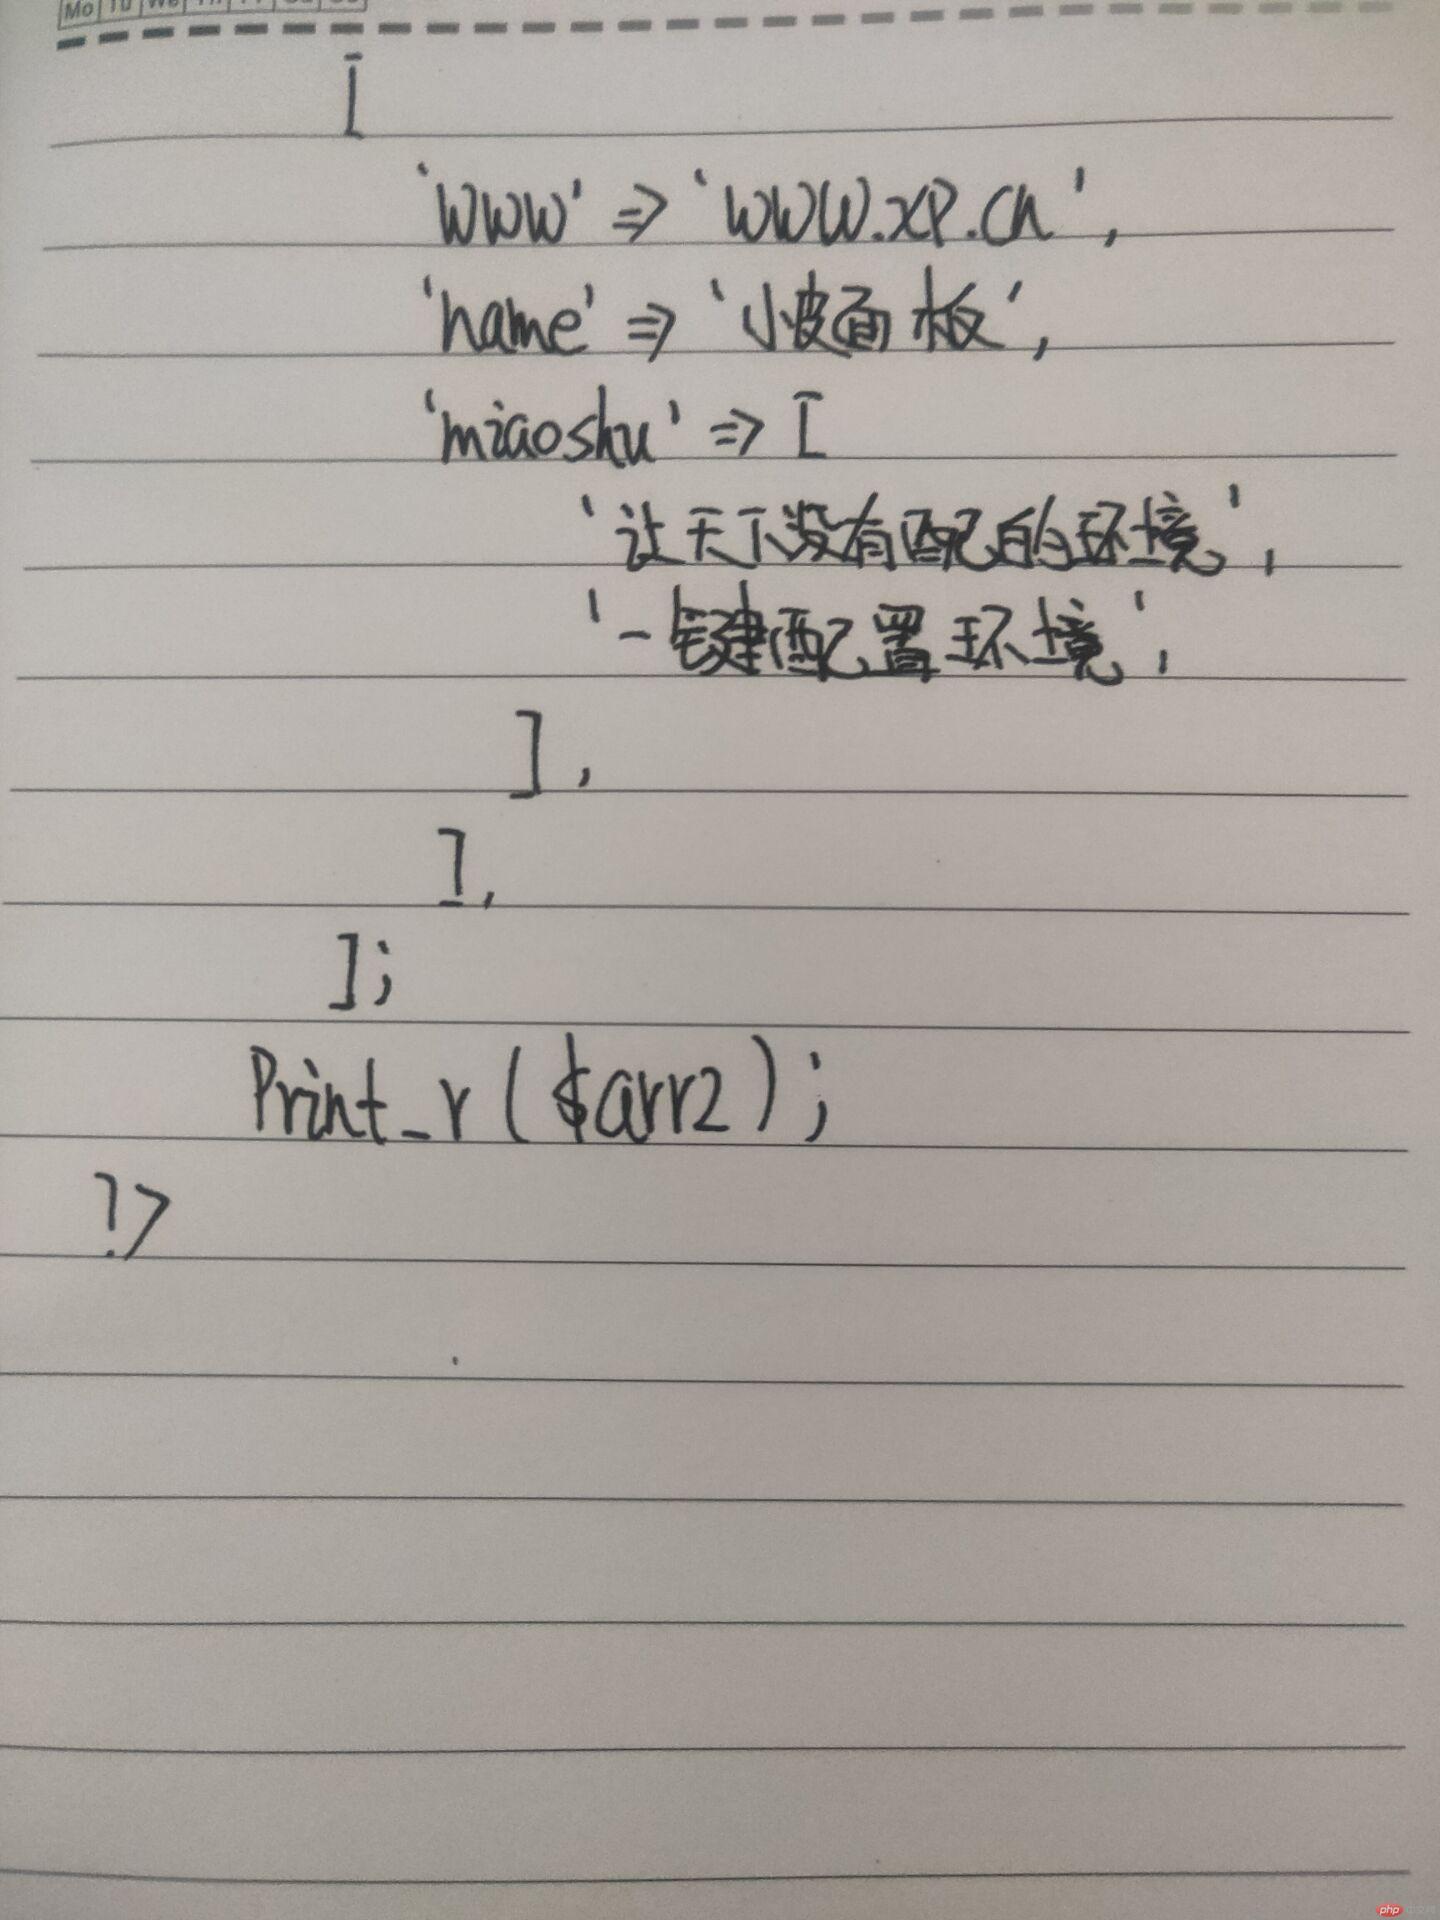 Mo Tu We Th Fr Sa Su
[
'www' => 'www.xp.cn',
'name' => '小皮面板',
'miaoshu' => [
'让天下没有配的环境',
'一键配置环境',
],
],
];
Print_r($arr2);
?>
php中文网